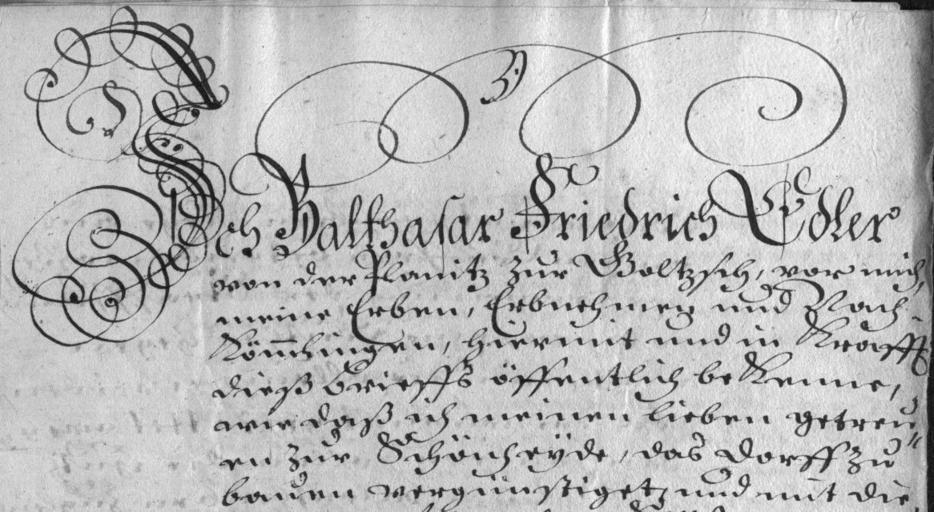 Ich Balthasar Friedrich Edler
von der Planitz zur Goltzsch, vor mich,
meine Erben, Erbnehmen und Nach-
kömmlingen, hiermit und in Krafft
dieß brieffs öffentlich bekenne,
wie daß ich meinen lieben getreu-
en zur Schönheyde, das dorff zu
bauen vergünstiget, und mit die